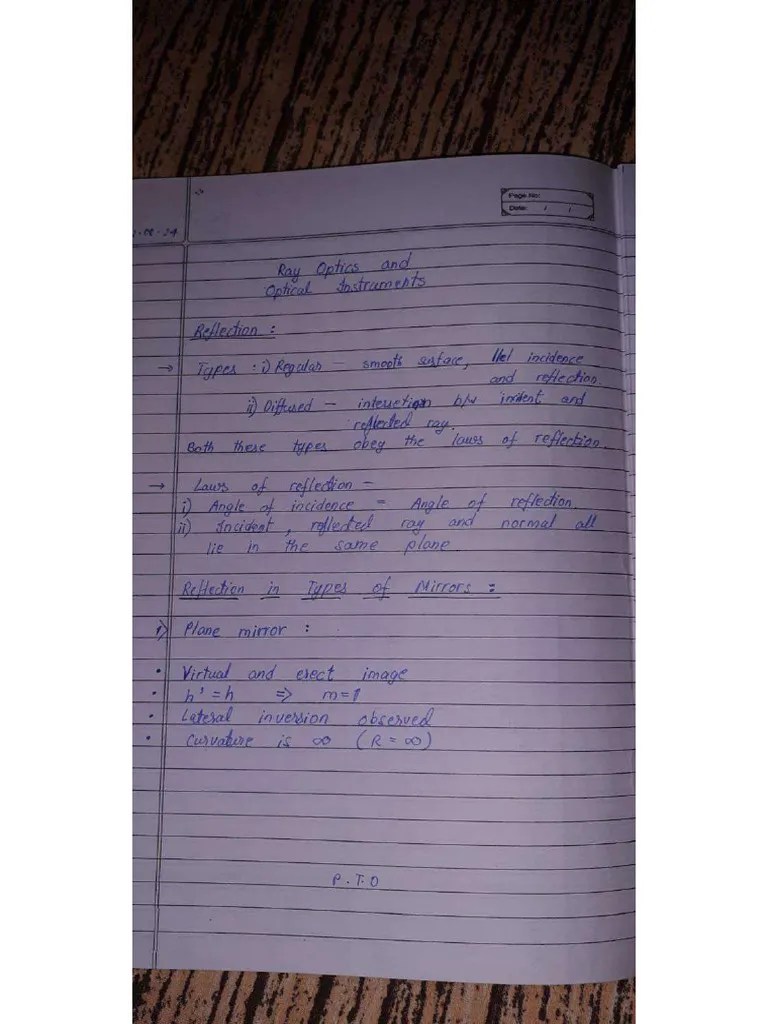 Page No:
Date: / /
-08-24
Ray Optics and
Optical Instruments
Reflection :
→ Types : i) Regular – smooth surface, llel incidence
and reflection
ii) Diffused – intersection b/w incident and
reflected ray.
Both these types obey the laws of reflection.
→ Laws of reflection –
i) Angle of incidence = Angle of reflection.
ii) Incident, reflected ray and normal all
lie in the same plane.
Reflection in Types of Mirrors :
1) Plane mirror :
• Virtual and erect image
• h' = h => m=1
• Lateral inversion observed
• Curvature is ∞ (R = ∞)
P.T.O